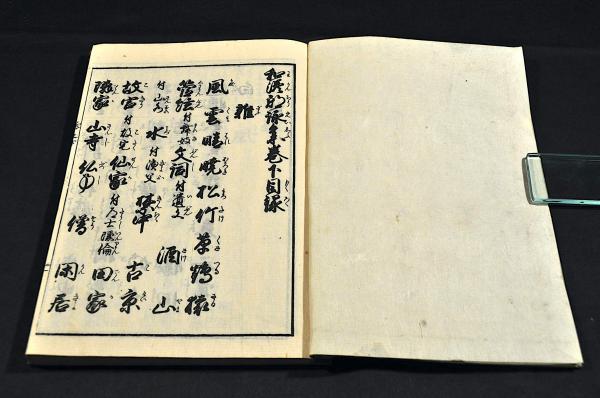 和漢朗詠集巻下目録
雑
風 雲 晴 暁 松 竹 草 鶴 猿
管絃 付舞妓 文詞 付遺文 酒 山
付山水 水 付漁父 禁中 古京
故宮 付故宅 仙家 付道士隠倫 田家
隣家 山寺 仏事 僧 閑居